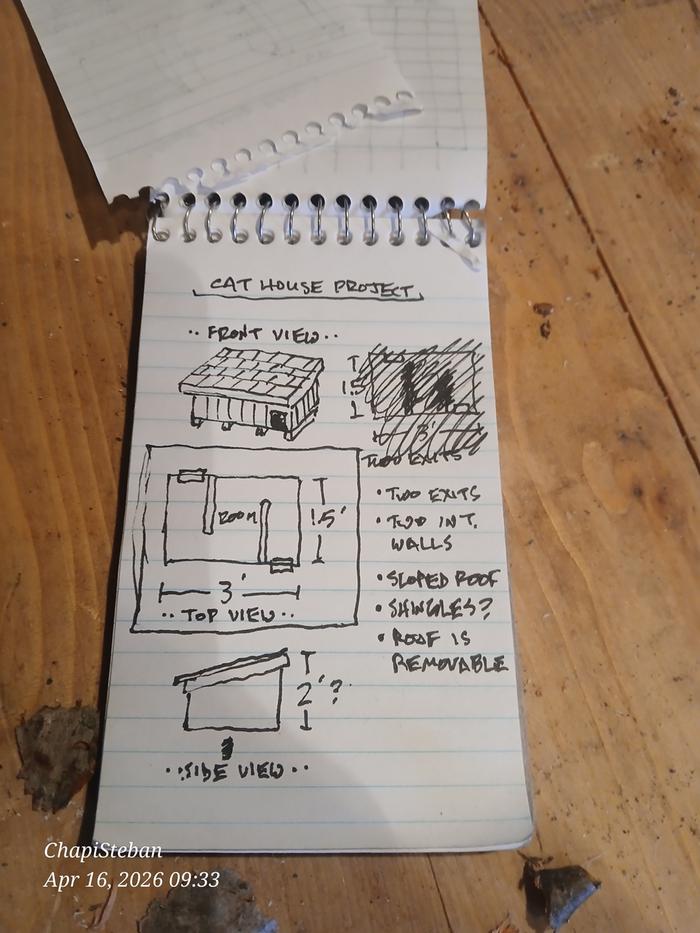 CAT HOUSE PROJECT
·· FRONT VIEW ··
3'
TWO EXITS
ROOM
1.5'
3'
·· TOP VIEW ··
• TWO EXITS
• TWO INT.
WALLS
• SLOPED ROOF
• SHINGLES?
• ROOF IS
REMOVABLE
2'?
·· SIDE VIEW ··
ChapiSteban
Apr 16, 2026 09:33